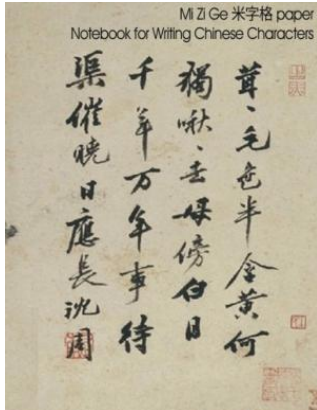 Mi Zi Ge 米字格 paper
Notebook for Writing Chinese Characters
茸〻毛色半含黄何
獨啾〻去母傍白日
千年万年事待
渠催曉日應長沈周